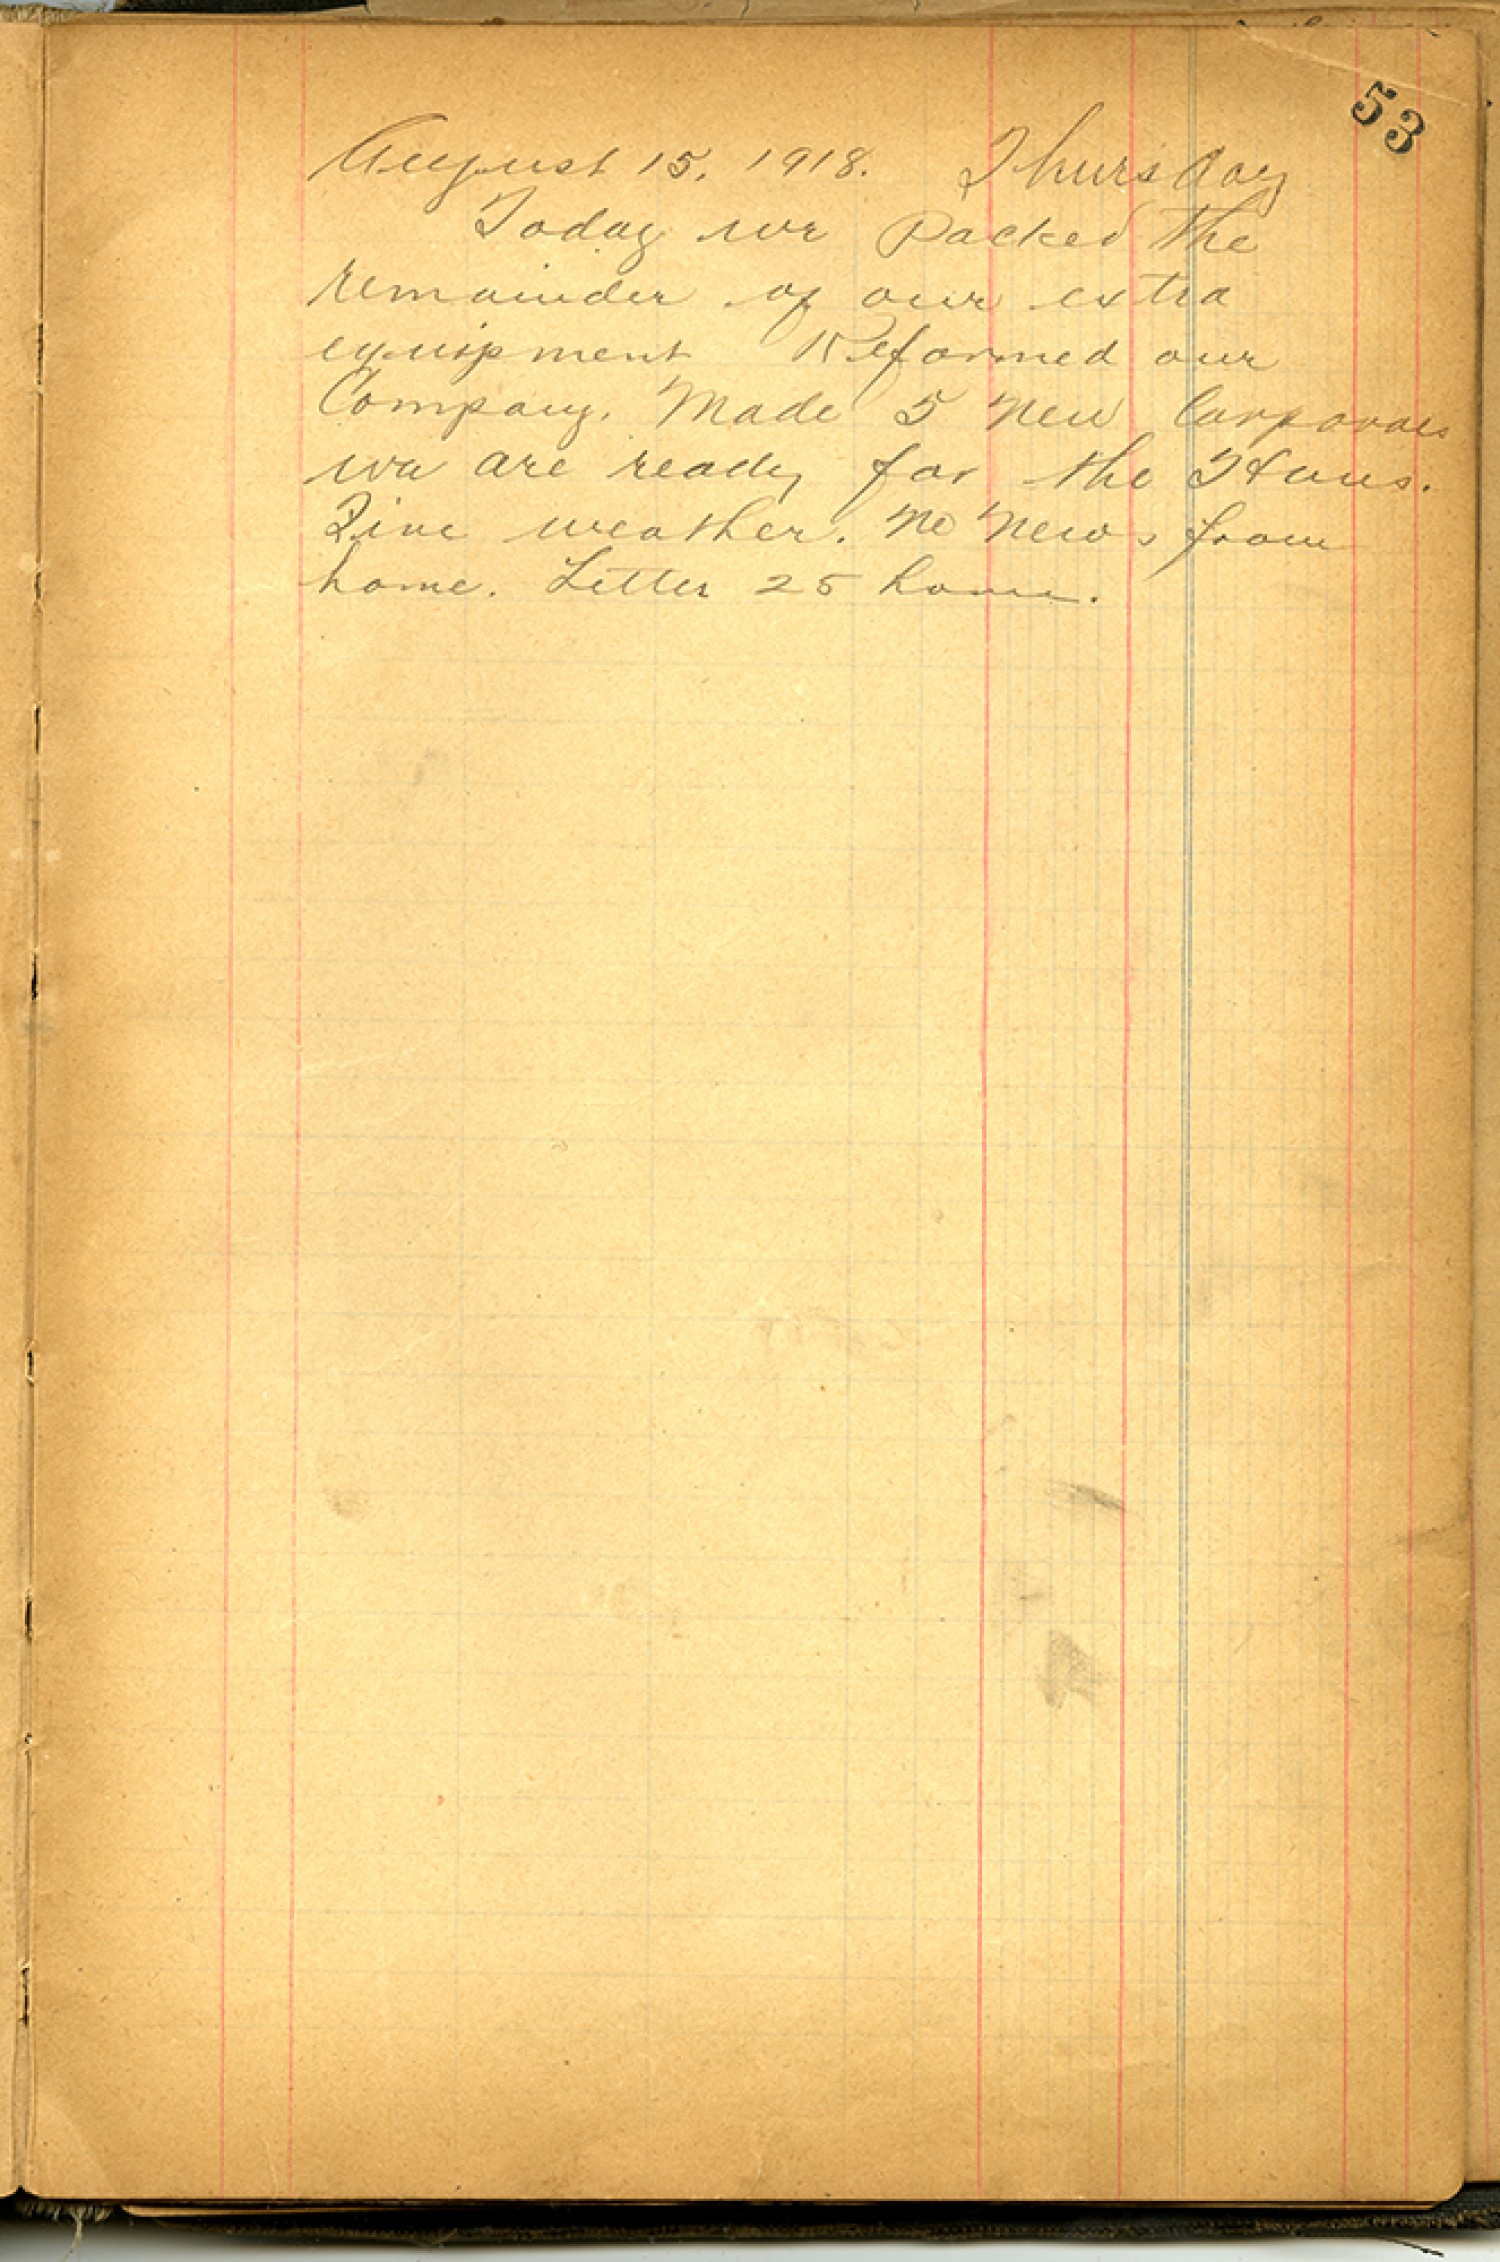 53
August 15, 1918. Thursday
Today we Packed the
remainder of our extra
equipment Reformed our
Company. Made 5 New Corporals
we are ready for the Huns.
Fine weather. No News from
home. Letter 25 home.